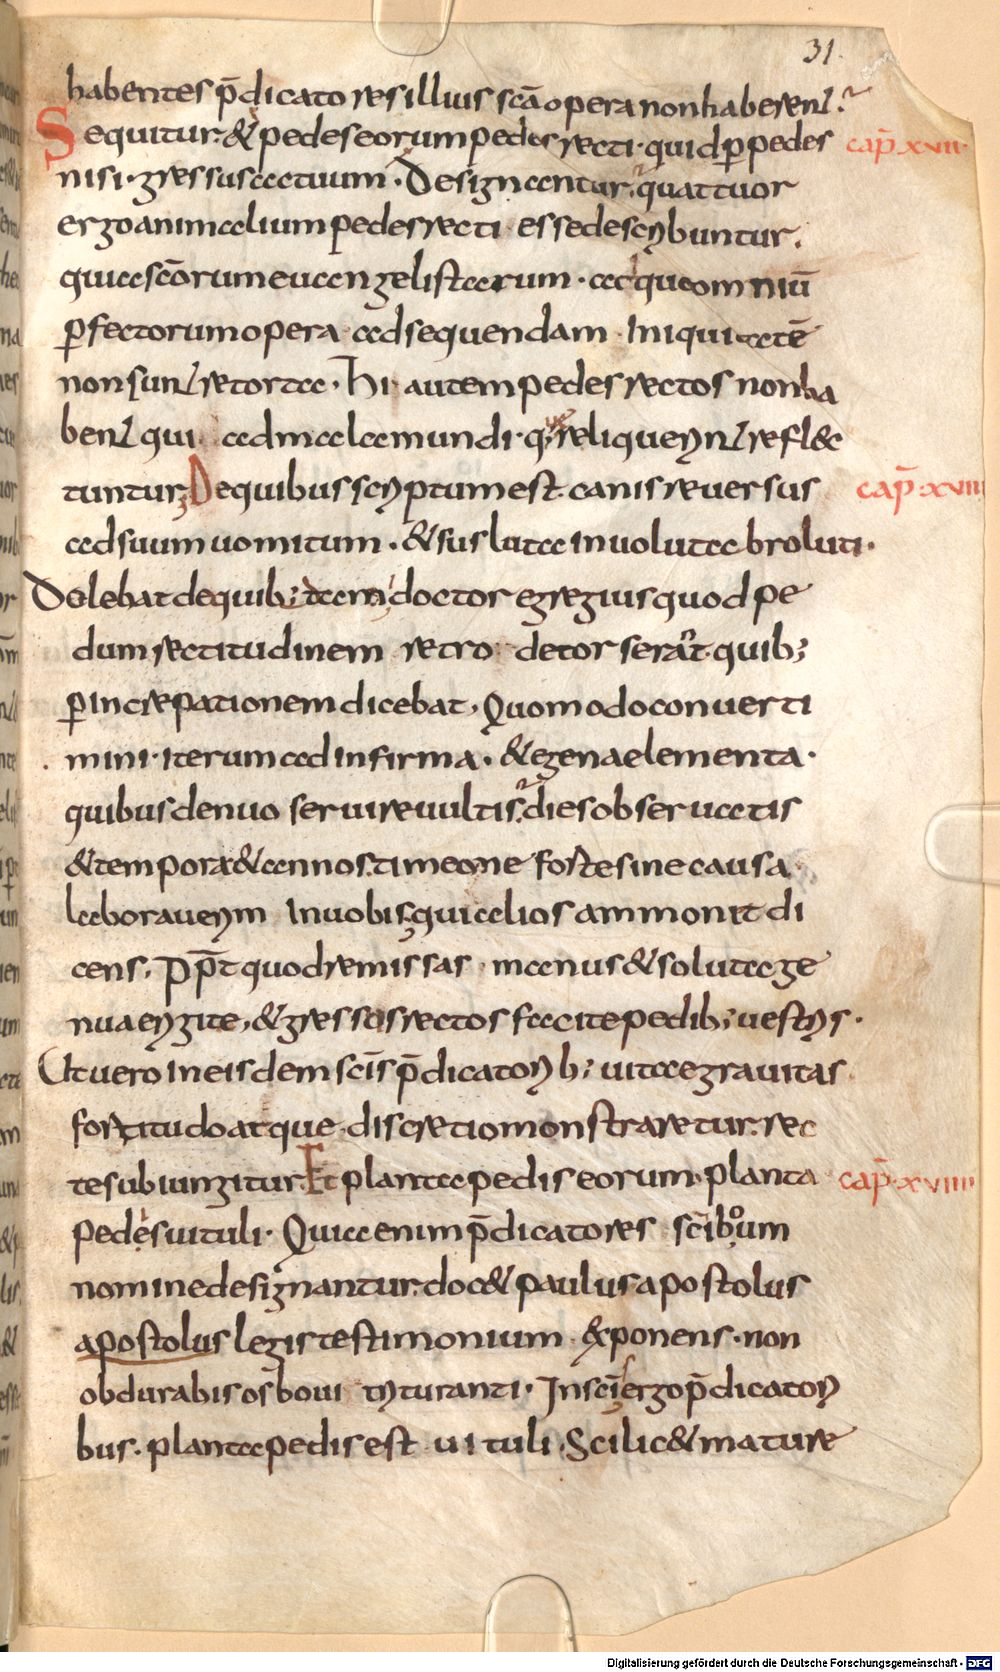 31.
habentes p̄dicatores illius sc̄a opera non haberent.
Sequitur. & pedes eorum pedes recti. quid ꝑ pedes cap̄ xvii
nisi. gressus actuum. Designantur. quattuor
ergo animalium pedes recti esse describuntur.
quia sc̄orum euangelistarum. atque omniū
ꝑfectorum opera ad sequendam iniquitatē
non sunt retorta. Hi autem pedes rectos non ha
bent qui ad mala mundi. q; reliquerunt refl&
tuntur; De quibus scriptum est. canis reuersus cap̄. xviii
ad suum uomitum. & sus lota in uoluta broluti.
Dolebat de quib; dam doctor egregius quod pe
dum rectitudinem retro detorserant. quib;
ꝑ increpationem dicebat, Quomodo conuerti
mini. iterum ad infirma. & egena elementa.
quibus denuo seruire uultis. dies obseruatis
& tempora & annos. timeo ne forte sine causa
laborauerim in uobis; qui alios ammonit di
cens. Pp̄t quod remissas manus & soluta ge
nua erigite, & gressos rectos facite pedib; uestris.
Ut uero in eisdem sc̄is p̄dicatorib; uitae grauitas
fortitudo atque discretio monstraretur. rec
te subiungitur Et planta pedis eorum. planta cap̄. xviiii
pedes uituli. Quia enim p̄dicatores sc̄i boum
nomine designantur. doc& paulus apostolus
apostolus legis testimonium exponens. non
obdurabis os boui trituranti. In sc̄is ergo p̄dicatori
bus. planta pedis est uituli. Scilic& mature
Digitalisierung gefördert durch die Deutsche Forschungsgemeinschaft - DFG